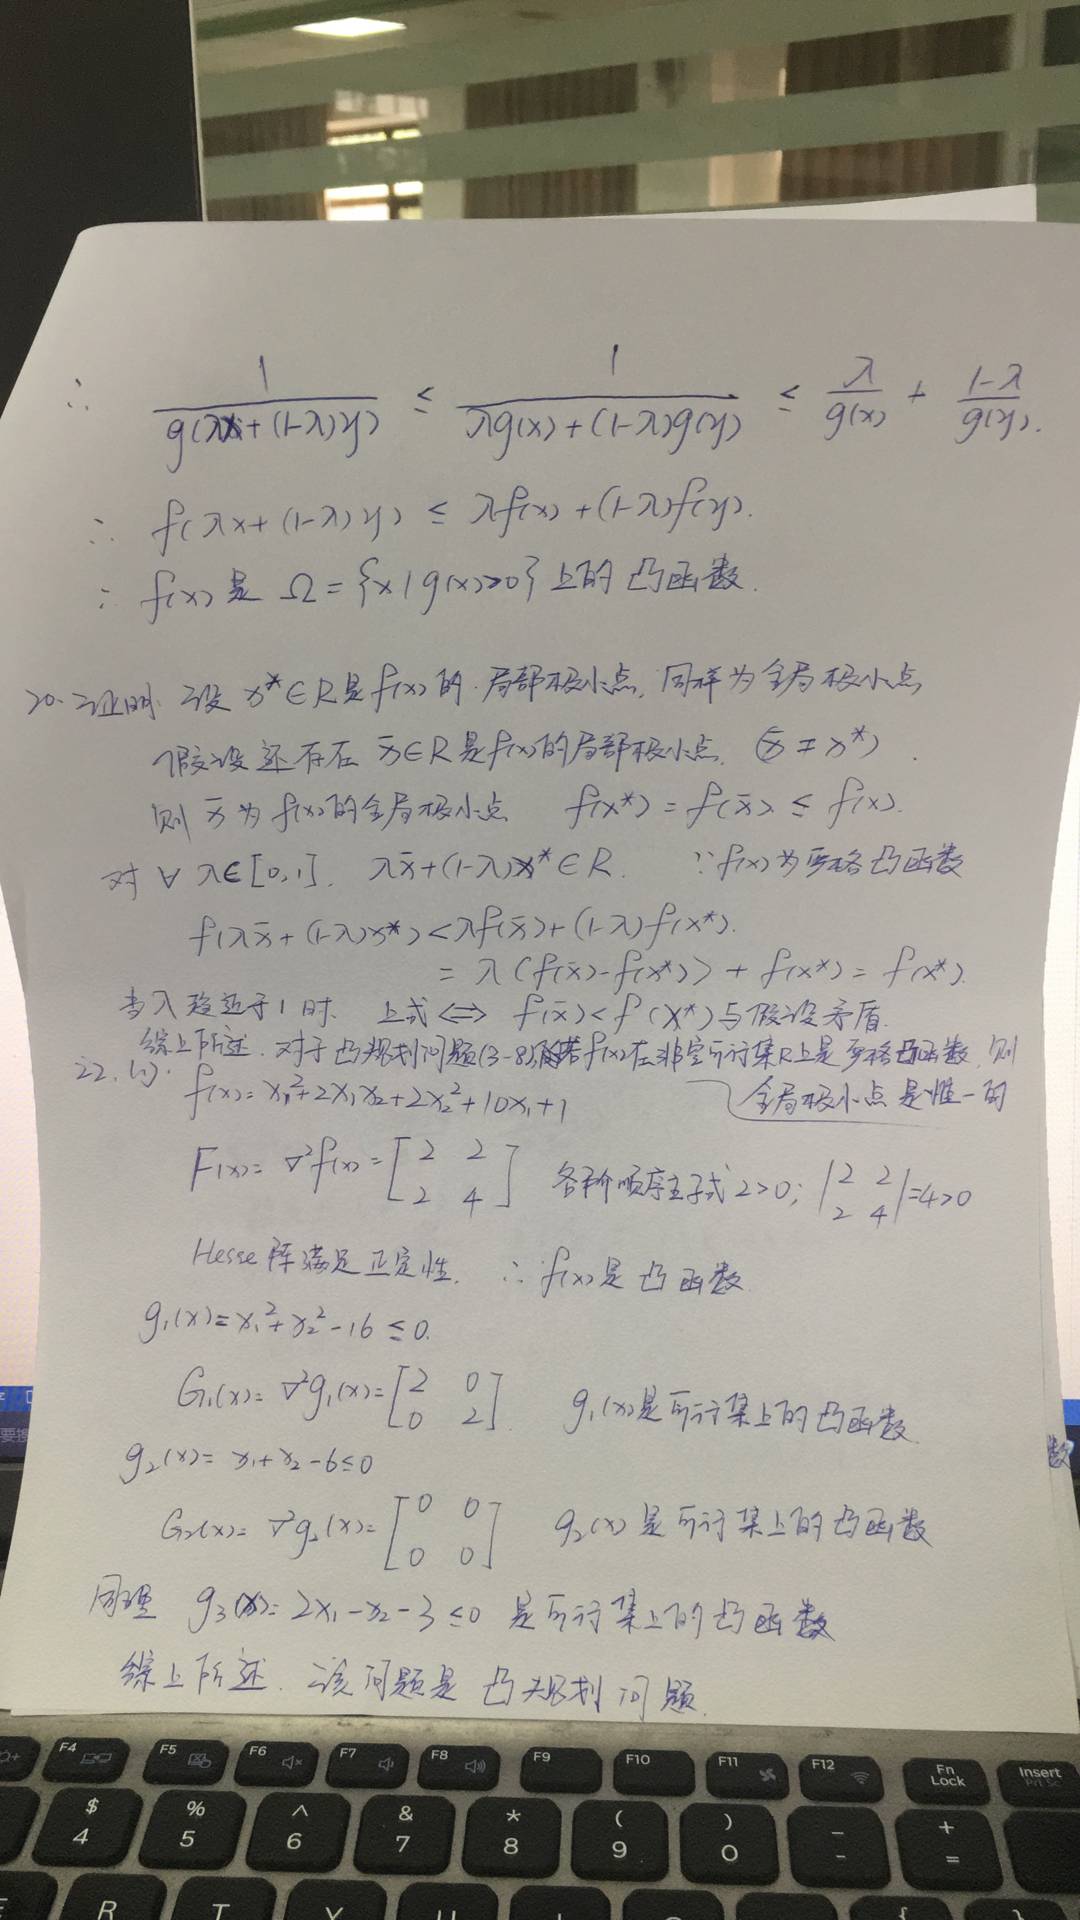 ∴ 1/g(λx+(1-λ)y) ≤ 1/λg(x)+(1-λ)g(y) ≤ λ/g(x) + 1-λ/g(y).
∴ f(λx+(1-λ)y) ≤ λf(x)+(1-λ)f(y).
∴ f(x)是 Ω={x|g(x)>0}上的凸函数.
20. 证明. 设 x*∈R是f(x)的局部极小点, 同样为全局极小点
假设还存在 x̄∈R是f(x)的局部极小点. (x̄≠x*).
则 x̄为f(x)的全局极小点 f(x*)=f(x̄)≤f(x).
对∀λ∈[0,1]. λx̄+(1-λ)x*∈R. ∵f(x)为严格凸函数
f(λx̄+(1-λ)x*)<λf(x̄)+(1-λ)f(x*).
=λ(f(x̄)-f(x*))+f(x*)=f(x*).
当λ趋近于1时. 上式⇔ f(x̄)<f(x*)与假设矛盾.
综上所述. 对于凸规划问题(3-8),若f(x)在非空可行集R上是严格凸函数, 则
全局极小点是惟一的
22. (1). f(x)=x₁²+2x₁x₂+2x₂²+10x₁+1
F(x)=∇²f(x)=[2 2
2 4] 各阶顺序主子式2>0; |2 2
2 4|=4>0
Hesse阵满足正定性. ∴f(x)是凸函数
g₁(x)=x₁²+x₂²-16≤0.
G₁(x)=∇²g₁(x)=[2 0
0 2]. g₁(x)是可行集上的凸函数
g₂(x)=x₁+x₂-6≤0
数
G₂(x)=∇²g₂(x)=[0 0
0 0] g₂(x)是可行集上的凸函数
同理 g₃(x)=2x₁-x₂-3≤0 是可行集上的凸函数
综上所述. 该问题是凸规划问题.
F4 F5 F6 F7 F8 F9 F10 F11 F12 Fn Lock Insert Prt Sc
$ 4 % 5 ^ 6 & 7 * 8 ( 9 ) 0 _ - + =
E R T Y U { [ }